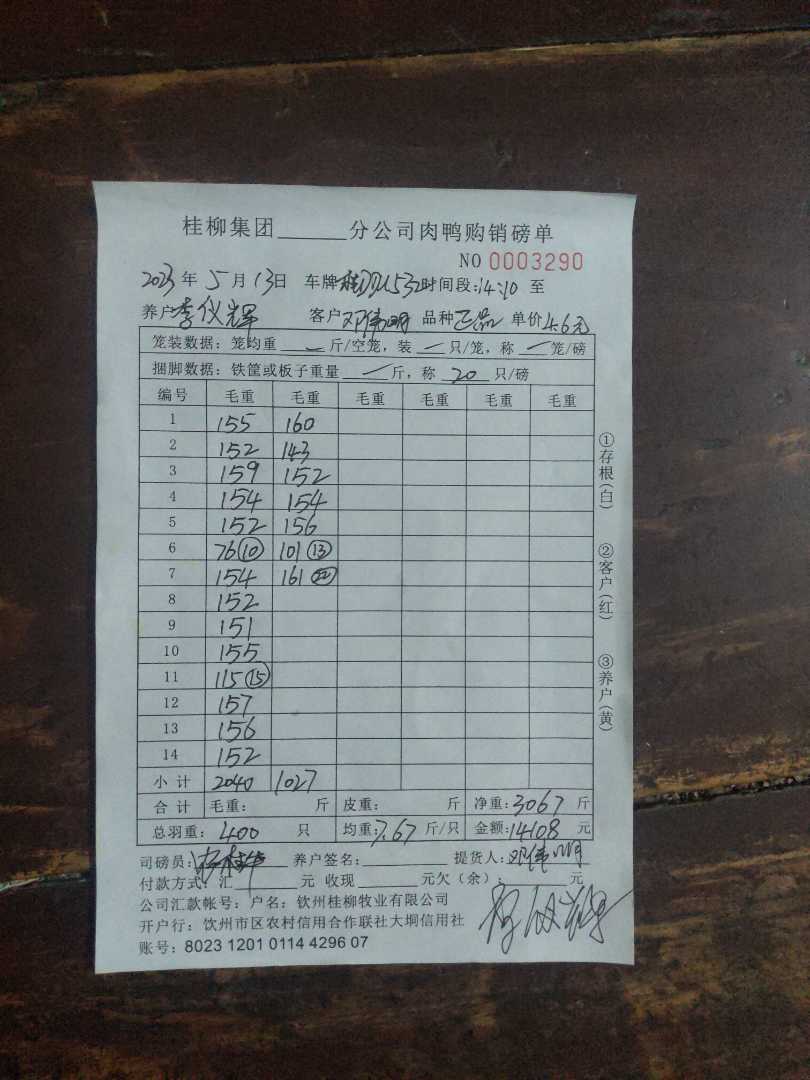 桂柳集团______分公司肉鸭购销磅单
NO 0003290
2023 年 5 月 13 日 车牌 532 时间段:14:10 至
养户 李仪辉 客户 邓伟明 品种 正品 单价 4.6元
笼装数据: 笼均重 一 斤/空笼, 装 一 只/笼, 称 一 笼/磅
捆脚数据: 铁筐或板子重量 一 斤, 称 20 只/磅
编号 毛重 毛重 毛重 毛重 毛重
1 155 160
2 152 143
3 159 152
4 154 154
5 152 156
6 76⑩ 101⑬
7 154 161㉒
8 152
9 151
10 155
11 115⑮
12 157
13 156
14 152
小计 2040 1027
合计 毛重: 斤 皮重: 斤 净重: 3067 斤
总羽重: 400 只 均重: 7.67 斤/只 金额: 14108 元
司磅员: 养户签名:______ 提货人: 邓伟明
付款方式: 汇______元 收现______元欠(余):______元
公司汇款帐号: 户名: 钦州桂柳牧业有限公司
开户行: 钦州市区农村信用合作联社大垌信用社
账号: 8023 1201 0114 4296 07
①存根(白)
②客户(红)
③养户(黄)